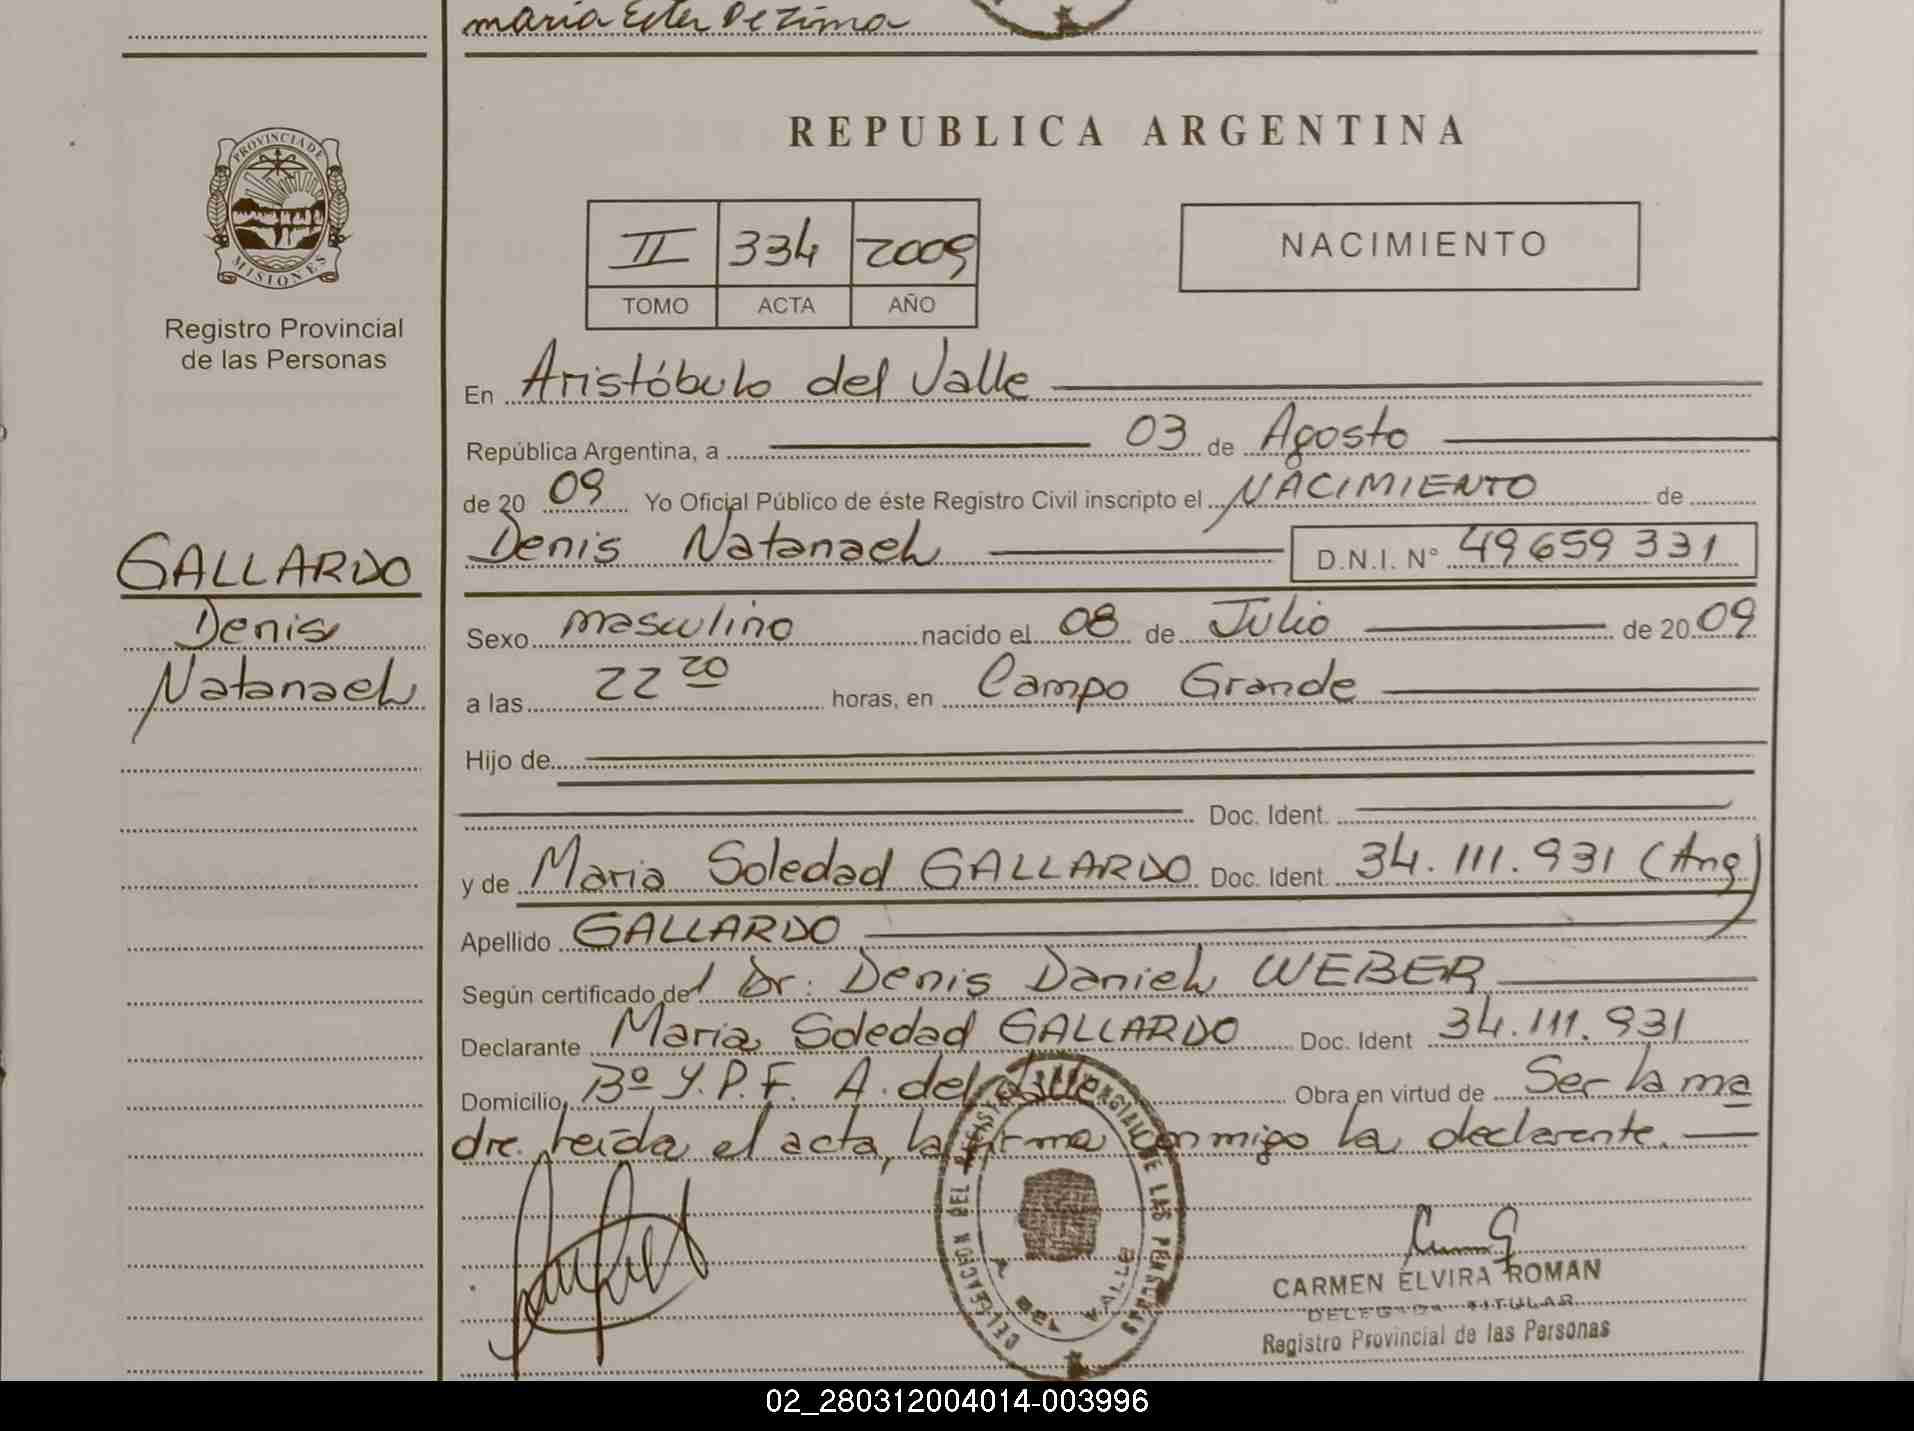 maria Ester De Zima
PROVINCIA DE
MISIONES
Registro Provincial
de las Personas
GALLARDO
Denis
Natanael
REPUBLICA ARGENTINA
II 334 2009
TOMO ACTA AÑO
NACIMIENTO
En Aristóbulo del Valle
República Argentina, a 03 de Agosto
de 20 09 Yo Oficial Público de éste Registro Civil inscripto el NACIMIENTO de
Denis Natanael D.N.I. N° 49659331
Sexo masculino nacido el 08 de Julio de 20 09
a las 22 20 horas, en Campo Grande
Hijo de
Doc. Ident.
y de Maria Soledad GALLARDO Doc. Ident. 34.111.931 (Arg)
Apellido GALLARDO
Según certificado de l Dr. Denis Daniel WEBER
Declarante Maria Soledad GALLARDO Doc. Ident 34.111.931
Domicilio Bº Y.P.F. A. del Valle Obra en virtud de Ser la ma
dre. leída el acta, la firma conmigo la declarante.
DELEGACIÓN DEL REGISTRO PROVINCIAL DE LAS PERSONAS
A DEL VALLE
CARMEN ELVIRA ROMAN
DELEGADA TITULAR
Registro Provincial de las Personas
02_280312004014-003996